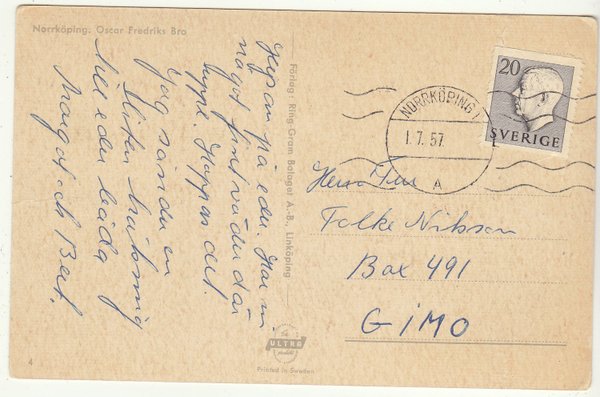 Norrköping. Oscar Fredriks Bro
Hejsan på eder. Har ni
något fint väder där
uppe. Hoppas det.
Jag sänder en
liten hälsning
till eder båda
Margot och Bert.
Förlag: Ring Gram Bolaget A.-B., Linköping
20
SVERIGE
NORRKÖPING 1
1.7.57
A
Herr
Folke Nilsson
Box 491
GIMO
ULTRA
Printed in Sweden
4